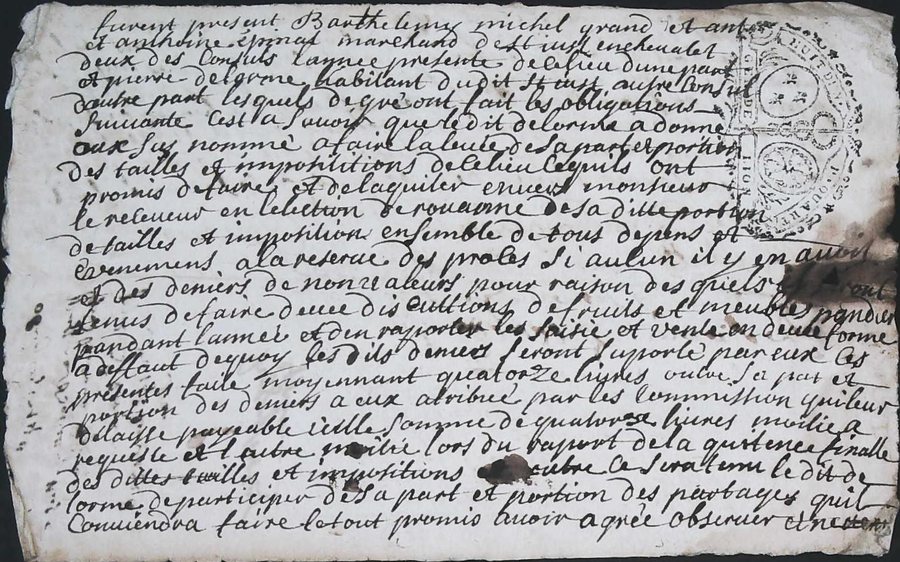 furent present Barthelemy michel grand et ant
et anthoine épinas marchand de St just en chevalet
deux des Consuls lannée presente de le lieu dune part
et pierre delorme habitant dudit St just autre Consul
dautre part lesquels de gré ont fait les obligations
suivante cest a savoir que ledit delorme a donné
aux sus nommé a faire la levée de sa part et portion
des tailles et impositions de le lieu lequils ont
promis de faire et de laquiter envers monsieur
le receveur en lelection de rouanne de sa ditte portion
de tailles et imposition ensemble de tous depens et
évenemens a la reserve des proles si aulun il y en avoit
et des deniers de non valeurs pour raison des quels ils seront
tenus de faire deuee discuttions de fruits et meubles pandier
pandant lannée et den raporter les saisie et vente en deuee forme
a deffaut de quoy les dits deniers seront suporté par eux ces
presentes faite moyennant quatorze livres outre sa pat et
portion des deniers a eux atribuée par les Commission quil leur
delaisse payeable icelle somme de quatorze livres moitié a
requeste et lautre moitié lors du raport de la quitence finalle
des dittes tailles et impositions outre ce sera tenu le dit de
lorme de participer de sa part et portion des partages quil
Conviendra faire le tout promis avoir agréé observer
GEN DE LION
HUIT DEN